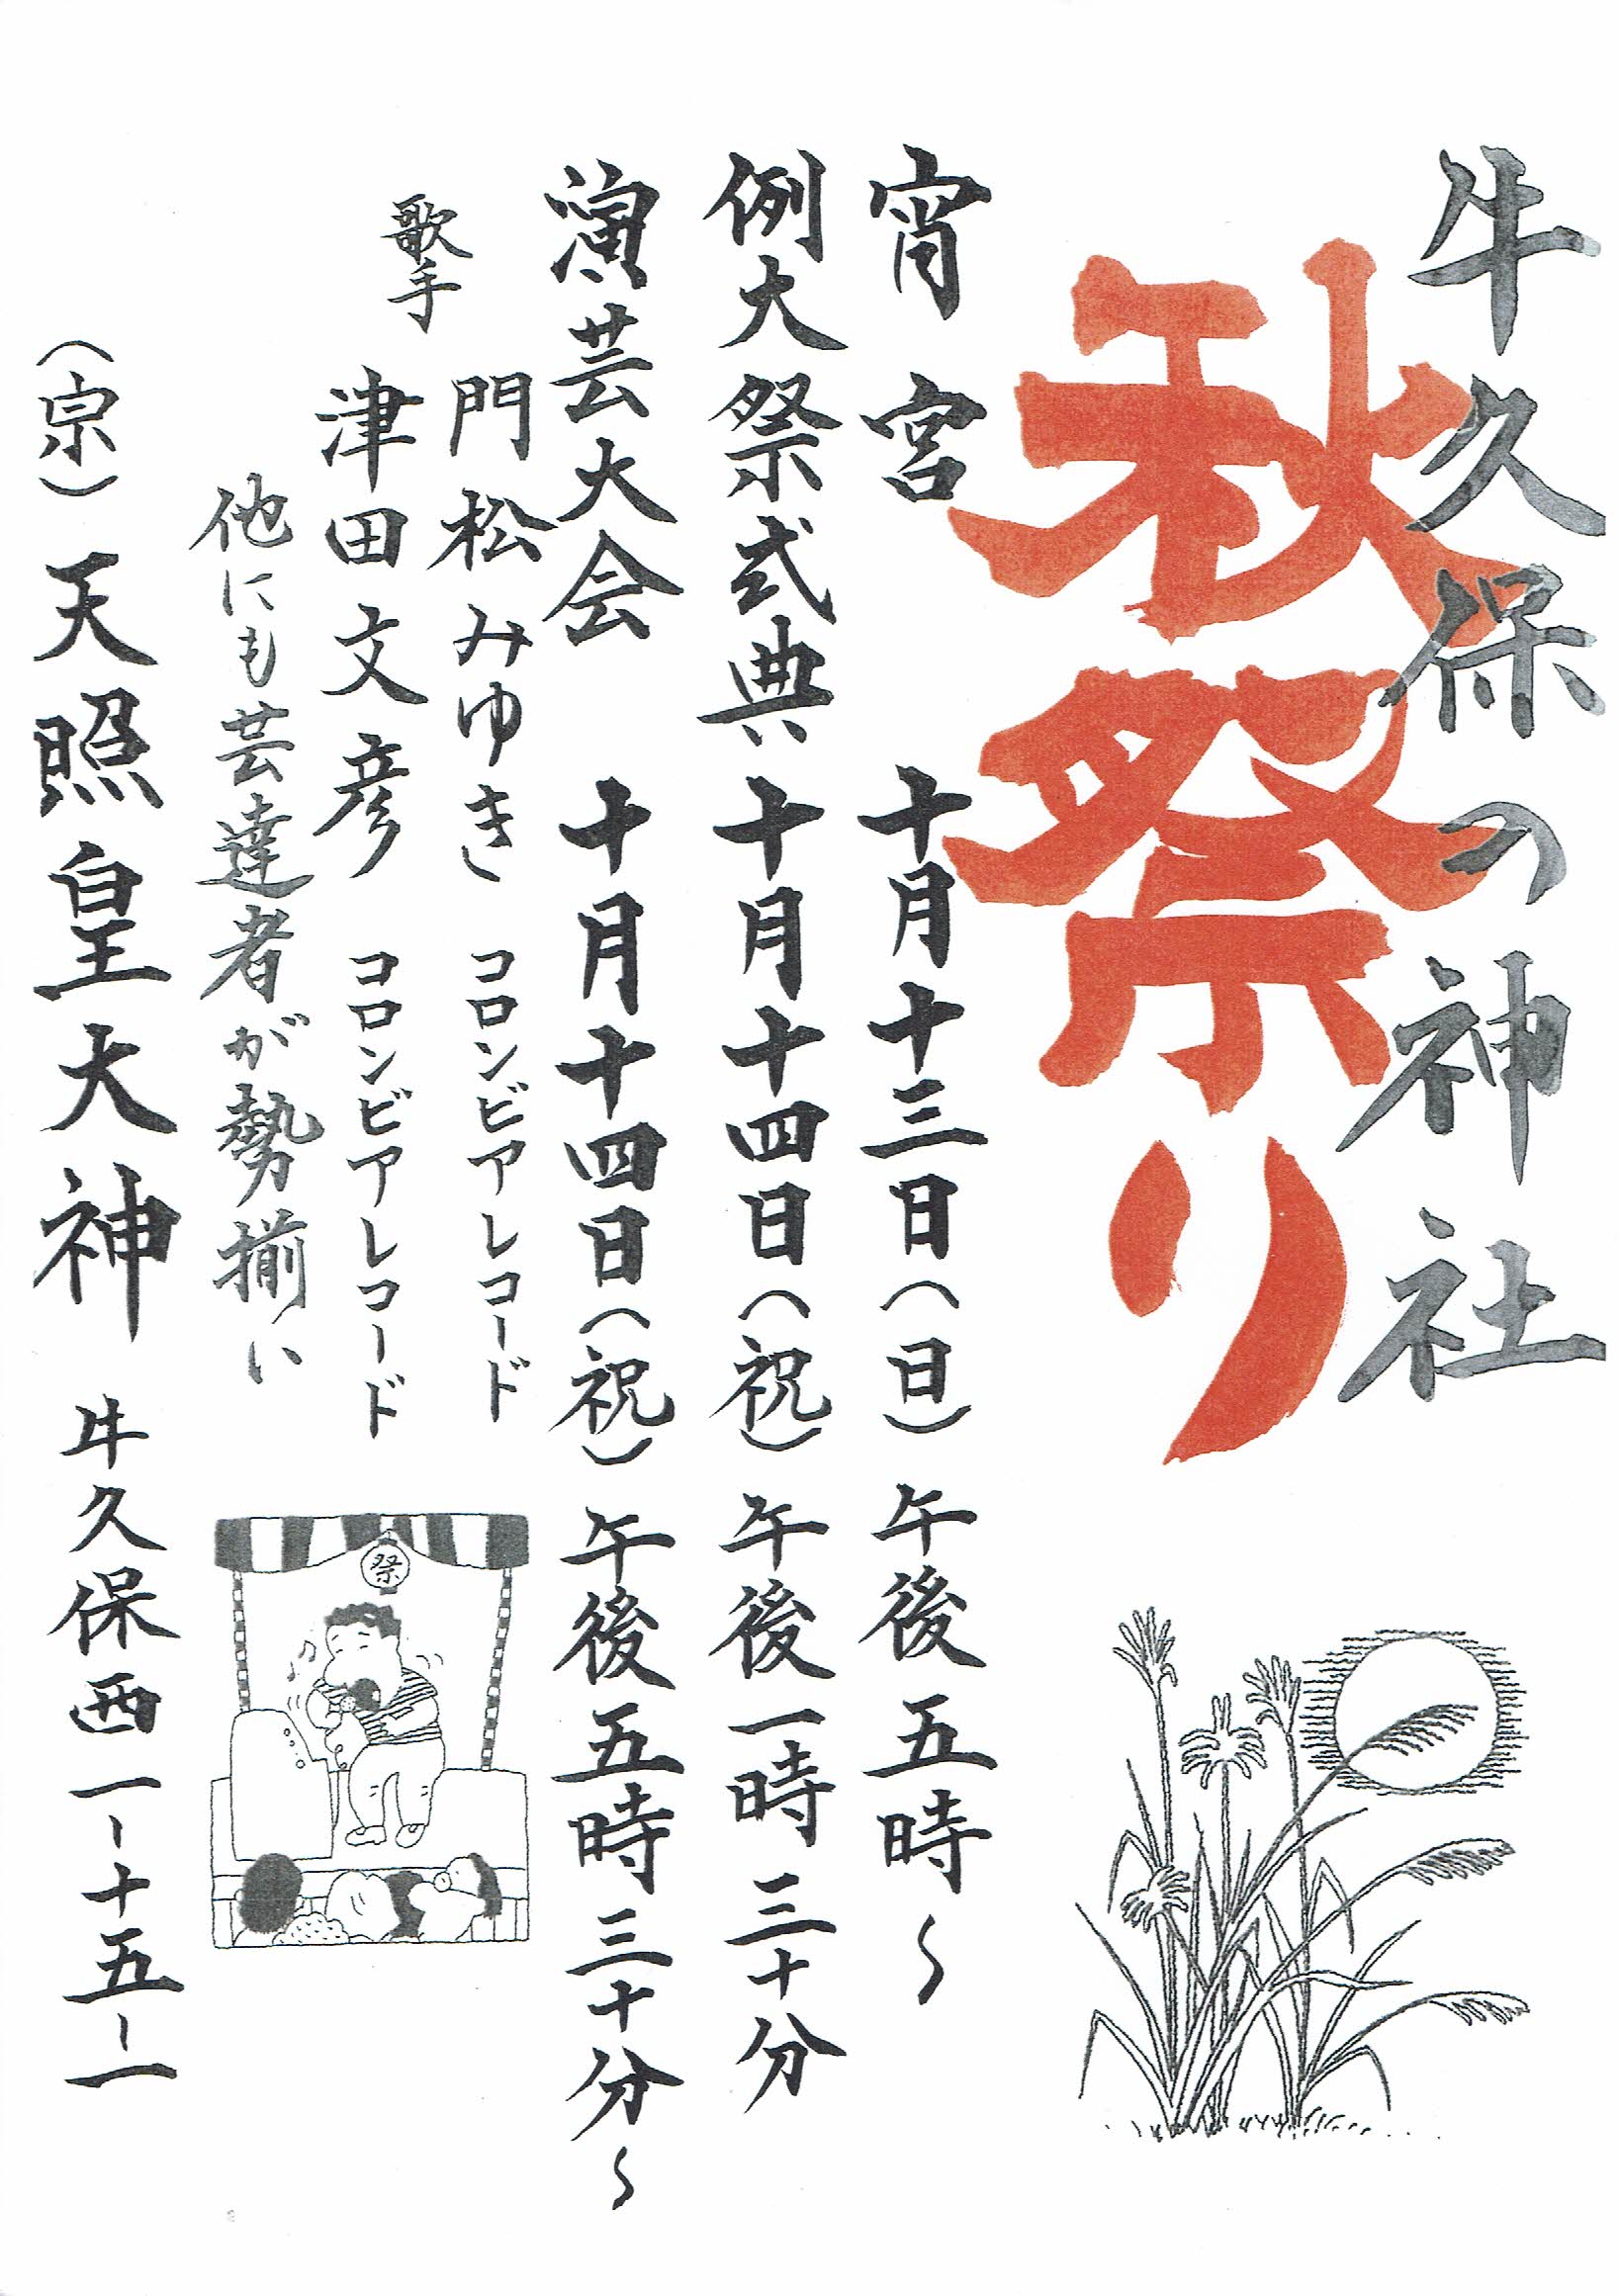 牛久保の神社
秋祭り
宵宮　十月十三日（日）午後五時～
例大祭式典　十月十四日（祝）午後一時三十分
演芸大会　十月十四日（祝）午後五時三十分～
歌手
門松みゆき　コロンビアレコード
津田文彦　コロンビアレコード
他にも芸達者が勢揃い
（宗）天照皇大神　牛久保西一-十五-一
祭